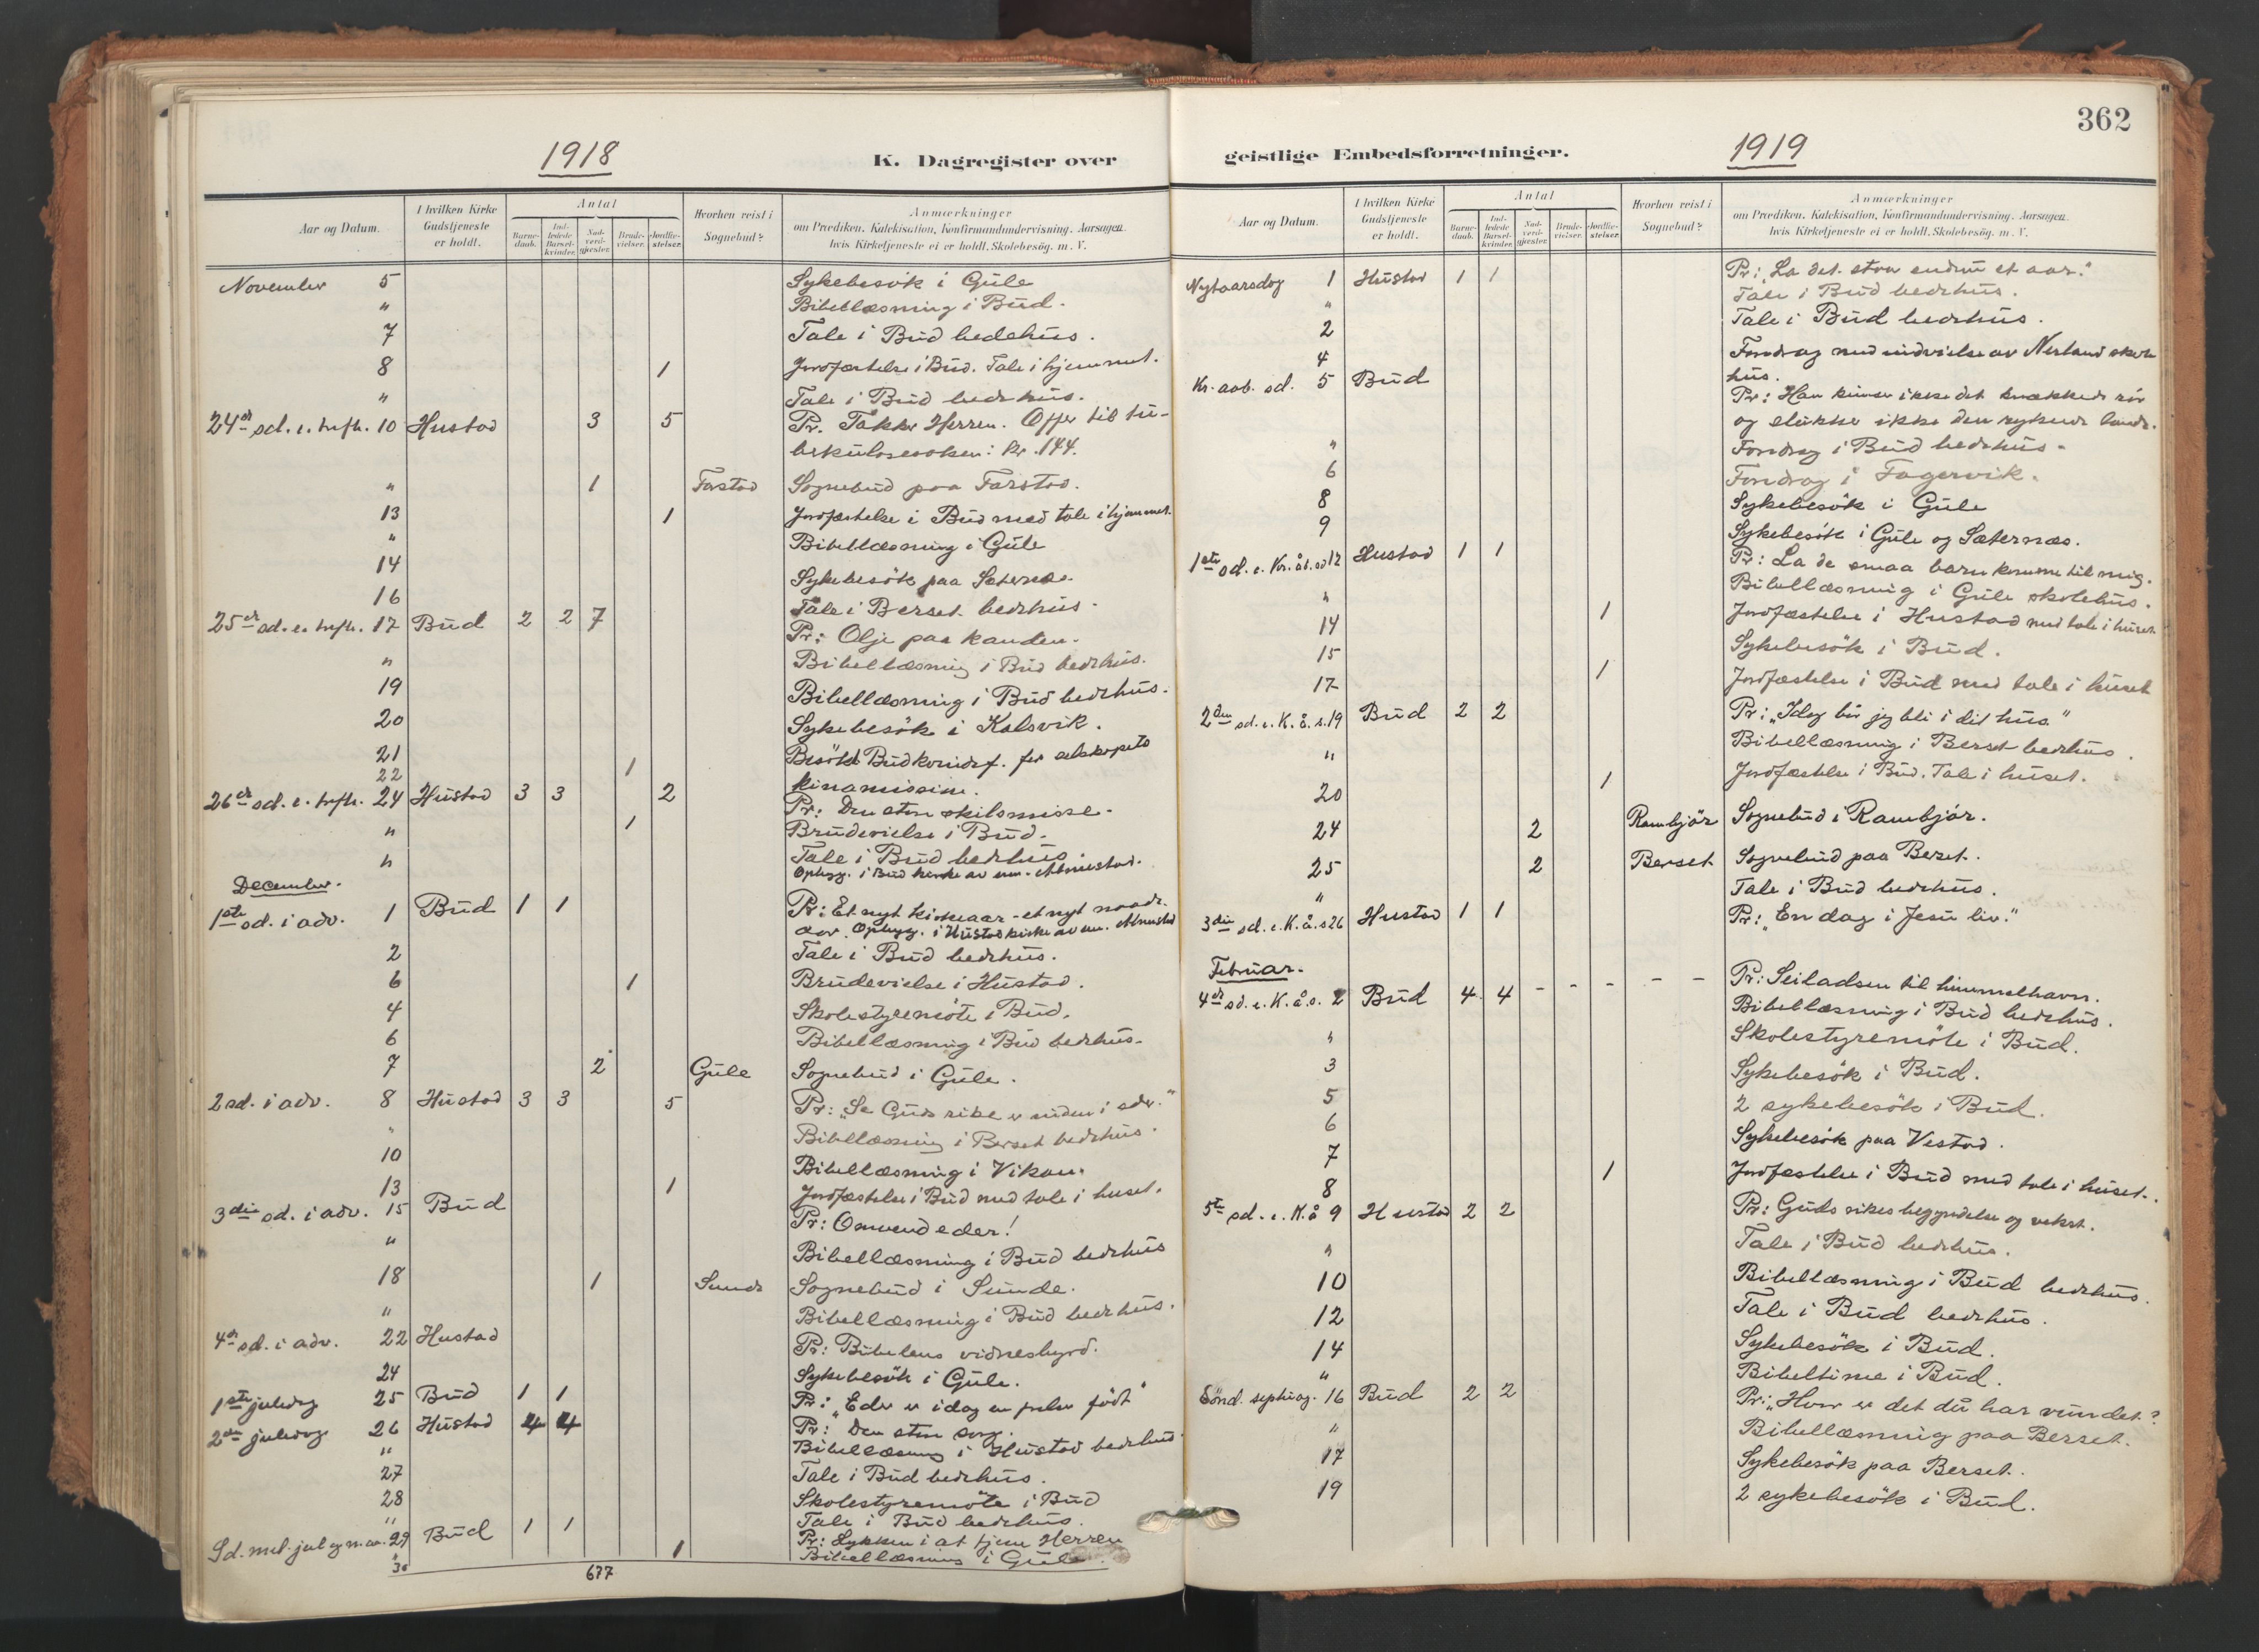 1918
K. Dagregister over
Aar og Datum.
I hvilken Kirke Gudstjeneste er holdt.
Antal
Barne-daab.
Ind-ledede Barsel-kvinder.
Nad-verd-gjester.
Brude-vielser.
Jordfæ-stelser.
Hvorhen reist i Sognebud?
Anmærkninger
om Prædiken, Katekisation, Konfirmandundervisning, Aarsagen,
hvis Kirketjeneste ei er holdt, Skolebesøg, m. V.
November 5 Sykebesök i Gule
" Bibellæsning i Bud.
7 Tale i Bud bedehus.
8 1 Jordfæstelse i Bud. Tale i hjemmet.
" Tale i Bud bedehus.
24de sd. e. trefh. 10 Hustad 3 5 Pr. Takker Herren. Offer til tu-
berkulosesaken: kr. 144.
" 1 Farstad Sognebud paa Farstad.
13 1 Jordfæstelse i Bud med tale i hjemmet.
" Bibellæsning i Gule
14 Sykebesök paa Sæternes.
16 Tale i Berset bedehus.
25de sd. e. trefh. 17 Bud 2 2 7 Pr: Olje paa kanden.
" Bibellæsning i Bud bedehus.
19 Bibellæsning i Bud bedehus.
20 Sykebesök i Kalsvik.
21 Besökt Bud for selskapets
22 1 kinamission.
26de sd. e. trefh. 24 Hustad 3 3 2 Pr: Den store skilsmisse.
" 1 Brudevielse i Bud.
" Tale i Bud bedehus.
Opbygg. i Bud kirke av em.
December.
1ste sd. i adv. 1 Bud 1 1 Pr: Et nyt kirkeaar - et nyt naade-
aar. Opbygg. i Hustad kirke av em.
2 Tale i Bud bedehus.
6 1 Brudevielse i Hustad.
4 Skolestyremöte i Bud.
6 Bibellæsning i Bud bedehus.
7 2 Gule Sognebud i Gule.
2 sd. i adv. 8 Hustad 3 3 5 Pr: "Se Guds rike er inden i eder."
" Bibellæsning i Berset bedehus.
10 Bibellæsning i Vikan.
13 1 Jordfæstelse i Bud med tale i huset.
3die sd. i adv. 15 Bud Pr: Omvend eder!
" Bibellæsning i Bud bedehus
18 1 Sunde Sognebud i Sunde.
" Bibellæsning i Bud bedehus.
4de sd. i adv. 22 Hustad Pr: Bibelens vidnesbyrd.
24 Sykebesök i Gule.
1ste juledag 25 Bud 1 1 Pr: "Eder er idag en frelser född"
2den juledag 26 Hustad 4 4 Pr: Den store sorg.
" Bibellæsning i Hustad bedehus
27 Tale i Bud bedehus.
28 Skolestyremöte i Bud
" Tale i Bud bedehus.
Sd. mel. jul og n. aar. 29 Bud 1 1 Pr: Lykken i at tjene Herren
30 1 Bibellæsning i Gule.
677
362
geistlige Embedsforretninger.
1919
Aar og Datum.
I hvilken Kirke Gudstjeneste er holdt.
Antal
Barne-daab.
Ind-ledede Barsel-kvinder.
Nad-verd-gjester.
Brude-vielser.
Jordfæ-stelser.
Hvorhen reist i Sognebud?
Anmærkninger
om Prædiken, Katekisation, Konfirmandundervisning, Aarsagen,
hvis Kirketjeneste ei er holdt, Skolebesøg, m. V.
Nytaarsdag 1 Hustad 1 1 Pr: "La det staa endnu et aar."
" Tale i Bud bedehus.
2 Tale i Bud bedehus.
4 Foredrag med indvielse av Nerland skole
hus.
Kr. aab. sd. 5 Bud Pr: Han knuser ikke det knækkede rör
og slukker ikke den rykende tande.
" Foredrag i Bud bedehus.
6 Foredrag i Fagervik.
8 Sykebesök i Gule
9 Sykebesök i Gule og Sæternæs.
1ste sd. e. Kr. åb. sd 12 Hustad 1 1 Pr: La de smaa barn komme til mig.
" Bibellæsning i Gule skolehus.
14 1 Jordfæstelse i Hustad med tale i huset.
15 Sykebesök i Bud.
17 1 Jordfæstelse i Bud med tale i huset
2den sd. e. K. å. s. 19 Bud 2 2 Pr: "Idag bör jeg bli i dit hus."
" Bibellæsning i Berset bedehus.
20 1 Jordfæstelse i Bud. Tale i huset.
24 2 Rambjör Sognebud i Rambjör.
25 2 Berset Sognebud paa Berset.
" Tale i Bud bedehus.
3die sd. e. K. å. s 26 Hustad 1 1 Pr: "En dag i Jesu liv."
Februar.
4de sd. e. K. å. s. 2 Bud 4 4 - - - - - Pr: Seiladsen til himmelhavn.
" Bibellæsning i Bud bedehus.
3 Skolestyremöte i Bud.
5 Sykebesök i Bud.
6 2 sykebesök i Bud.
7 Sykebesök paa Vestad.
8 1 Jordfæstelse i Bud med tale i huset.
5te sd. e. K. å 9 Hustad 2 2 Pr: Guds rikes begyndelse og vekst.
" Tale i Bud bedehus.
10 Bibellæsning i Bud bedehus.
12 Tale i Bud bedehus.
14 Sykebesök i Bud.
" Bibeltime i Bud.
Sönd. septuag. 16 Bud 2 2 Pr: "Hvor er det du har vundet?
" Bibellæsning paa Berset.
17 Sykebesök paa Berset.
19 2 sykebesök i Bud.